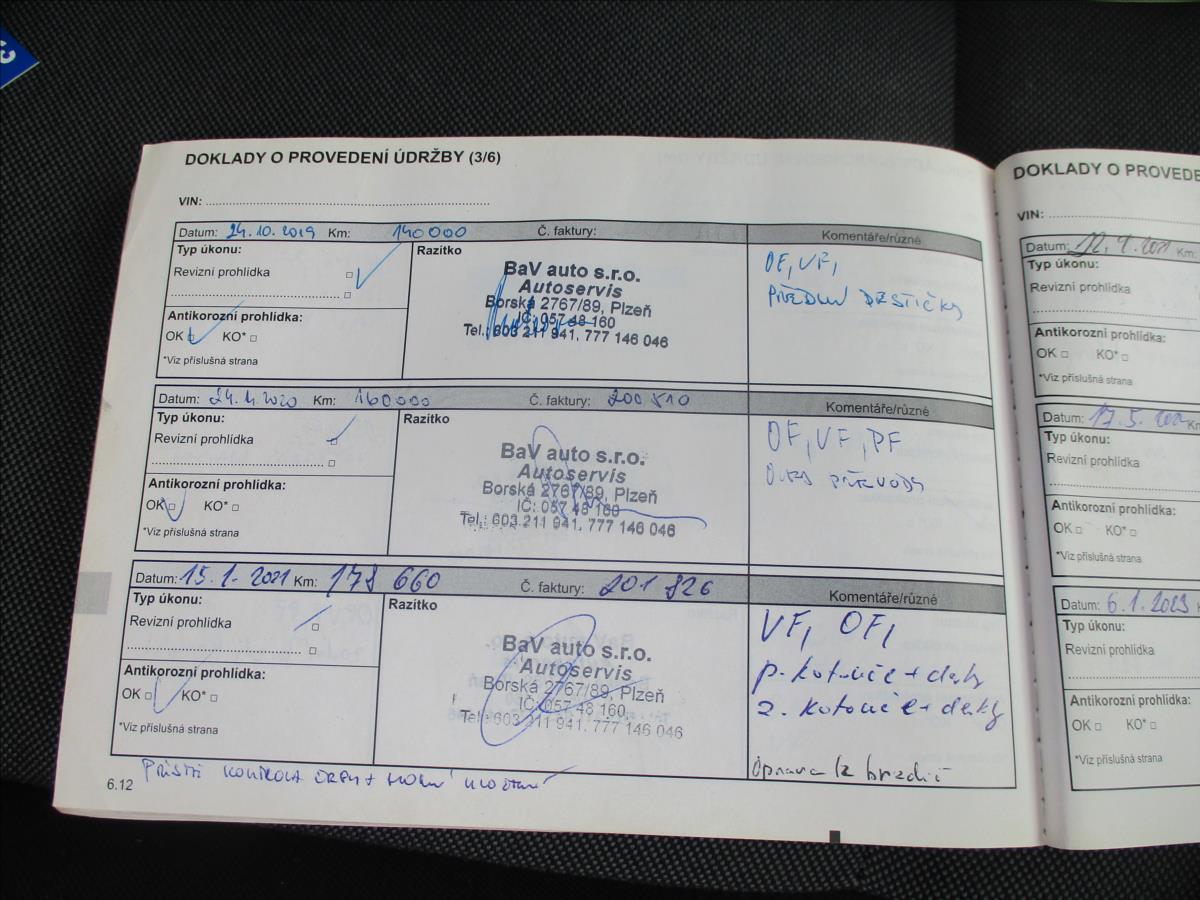 DOKLADY O PROVEDENÍ ÚDRŽBY (3/6)
VIN:
Datum: 24.10.2019 Km: 140000 Č. faktury:
Komentáře/různé
Typ úkonu:
Revizní prohlídka
Antikorozní prohlídka:
OK KO*
*Viz příslušná strana
Razítko
BaV auto s.r.o.
Autoservis
Borská 2767/89, Plzeň
IČ: 057 48 160
Tel.: 603 211 941, 777 146 046
OF, VF,
PŘEDNÍ DESTIČKY
Datum: 24.4.2020 Km: 160000 Č. faktury: 200510
Komentáře/různé
Typ úkonu:
Revizní prohlídka
Antikorozní prohlídka:
OK KO*
*Viz příslušná strana
Razítko
BaV auto s.r.o.
Autoservis
Borská 2767/89, Plzeň
IČ: 057 48 160
Tel.: 603 211 941, 777 146 046
OF, VF, PF
OLEJ PŘEVODY
Datum: 15.1.2021 Km: 178 660 Č. faktury: 201 826
Komentáře/různé
Typ úkonu:
Revizní prohlídka
Antikorozní prohlídka:
OK KO*
*Viz příslušná strana
Razítko
BaV auto s.r.o.
Autoservis
Borská 2767/89, Plzeň
IČ: 057 48 160
Tel.: 603 211 941, 777 146 046
VF, OF,
p. kotouče + desky
z. kotouče + desky
Oprava brzdič
PŘÍŠTĚ KONTROLA
6.12
DOKLADY O PROVEDE
VIN:
Datum: Km:
Typ úkonu:
Revizní prohlídka
Antikorozní prohlídka:
OK KO*
*Viz příslušná strana
Datum: 17.5. Km
Typ úkonu:
Revizní prohlídka
Antikorozní prohlídka:
OK KO*
*Viz příslušná strana
Datum: 6.1.2023
Typ úkonu:
Revizní prohlídka
Antikorozní prohlídka:
OK KO*
*Viz příslušná strana